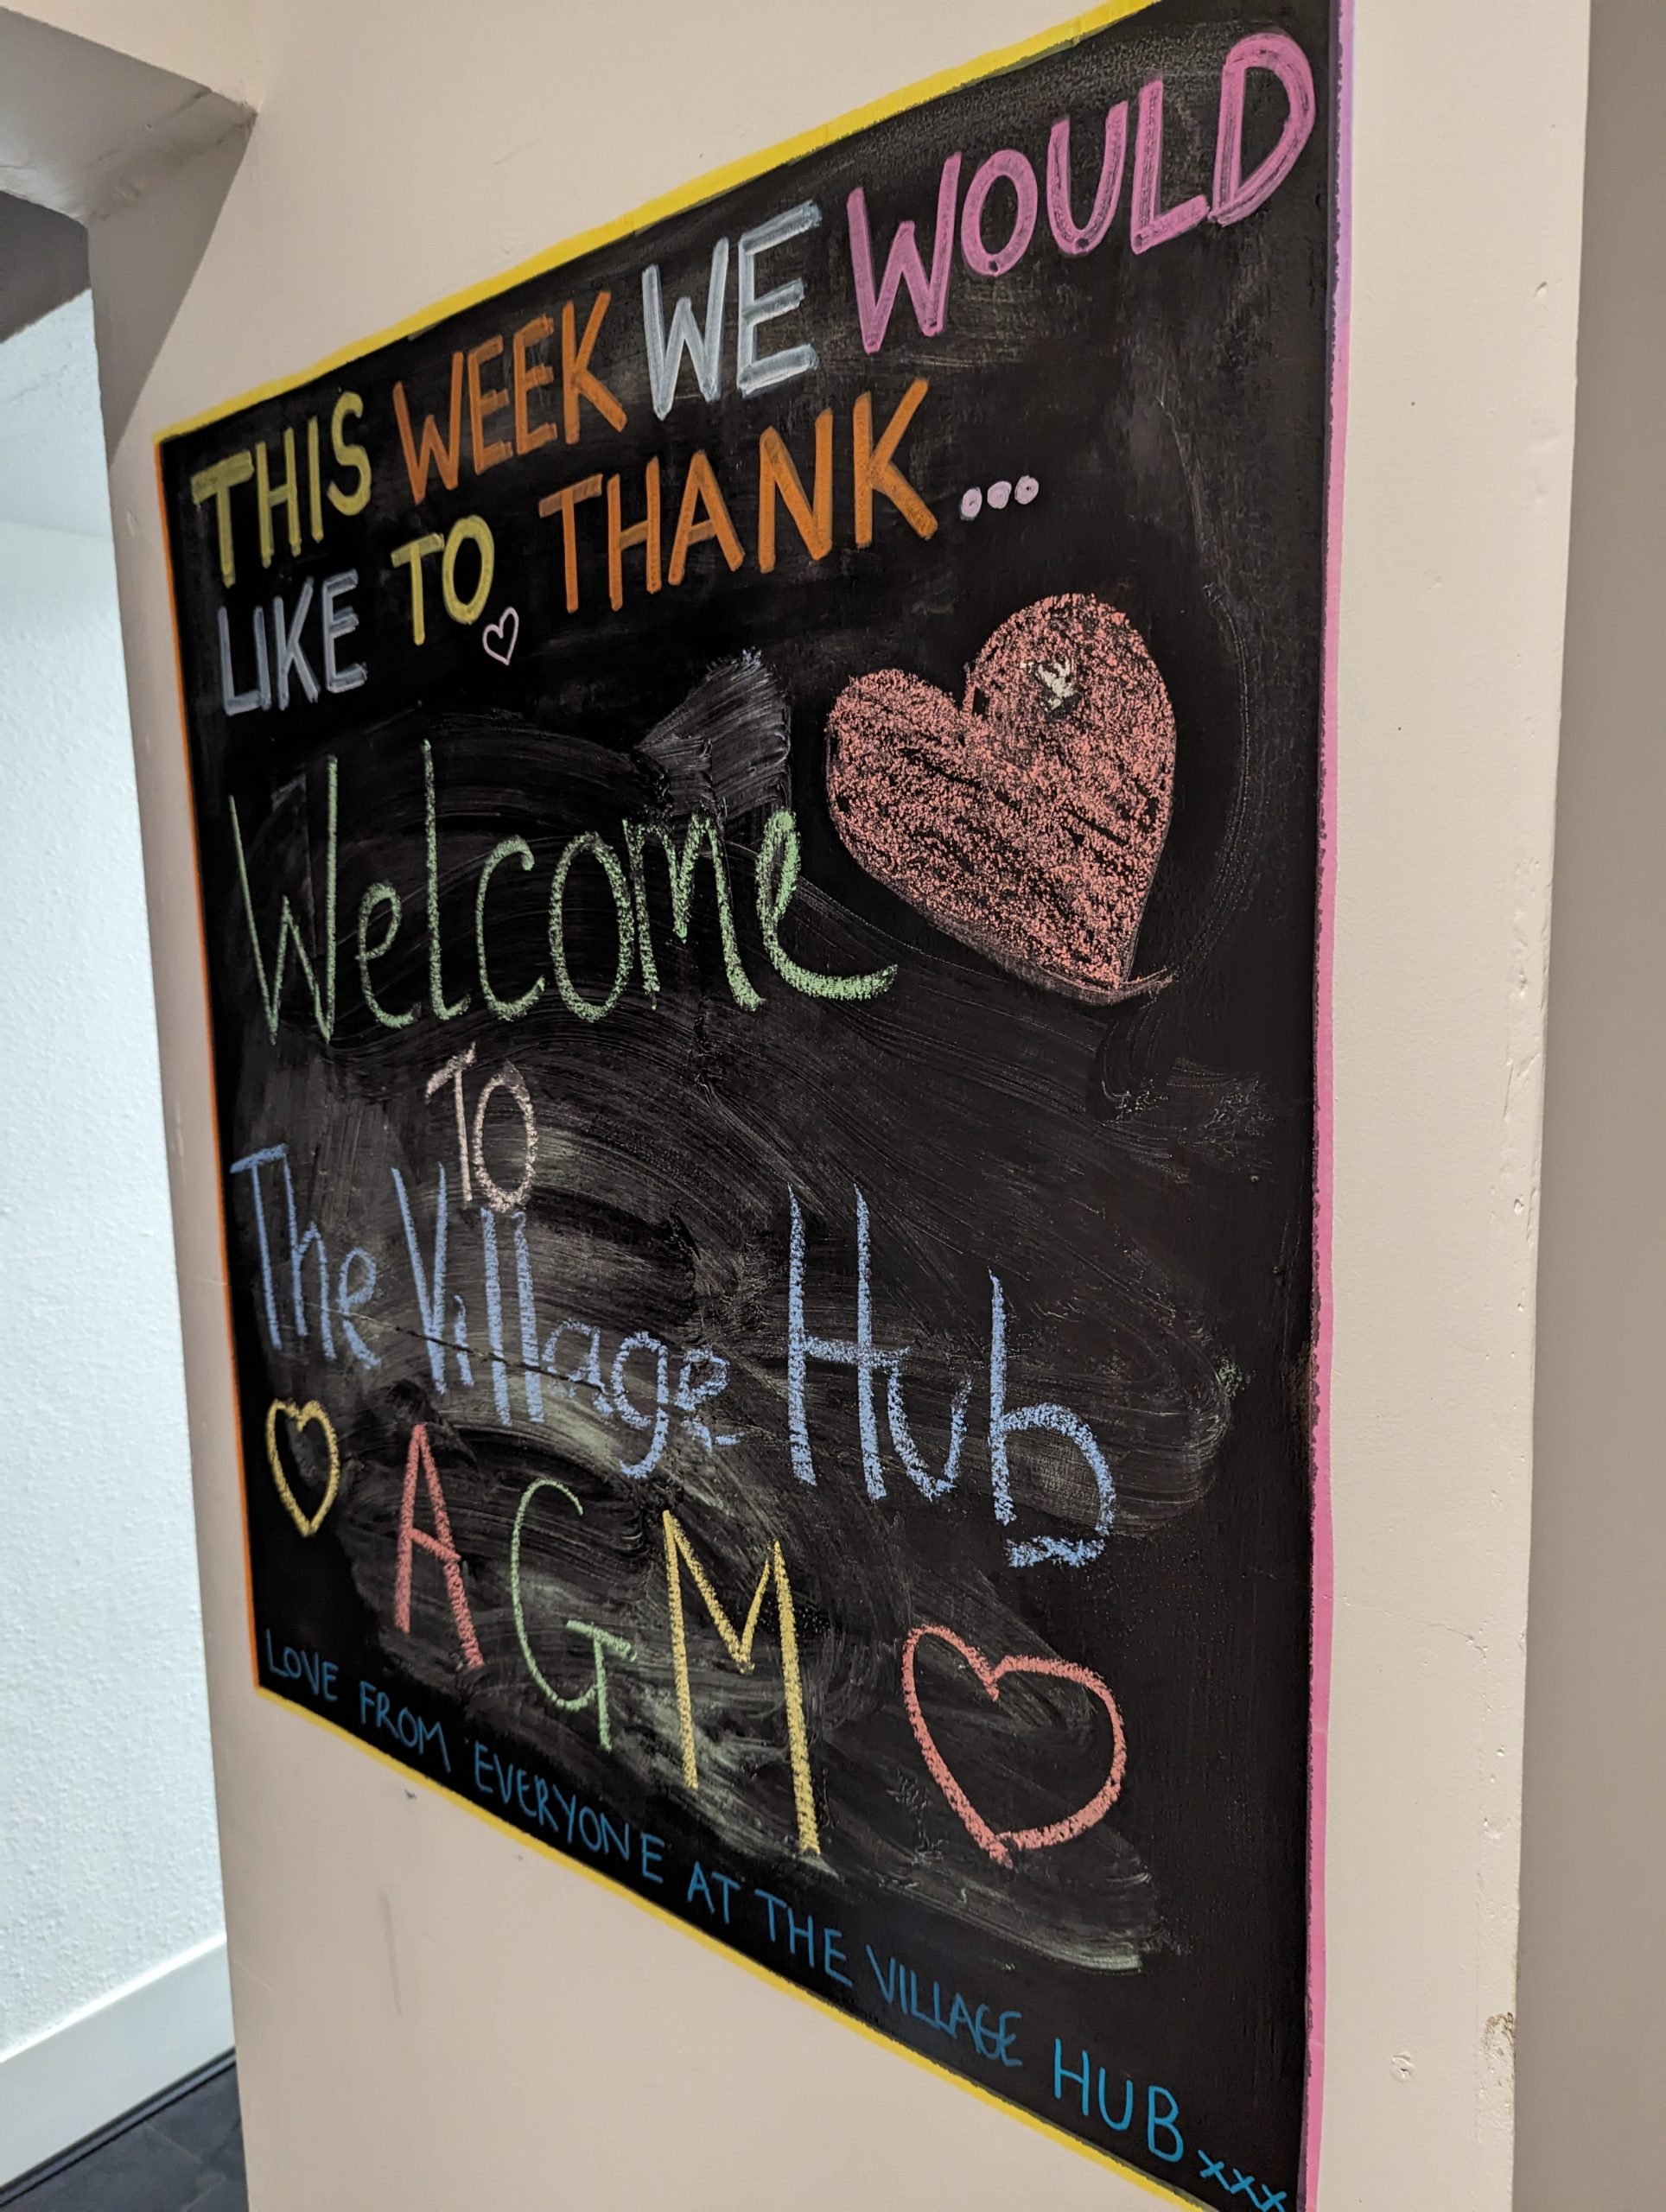 THIS WEEK WE WOULD
LIKE TO THANK...
Welcome
TO
The Village Hub
AGM
LOVE FROM EVERYONE AT THE VILLAGE HUB xxx